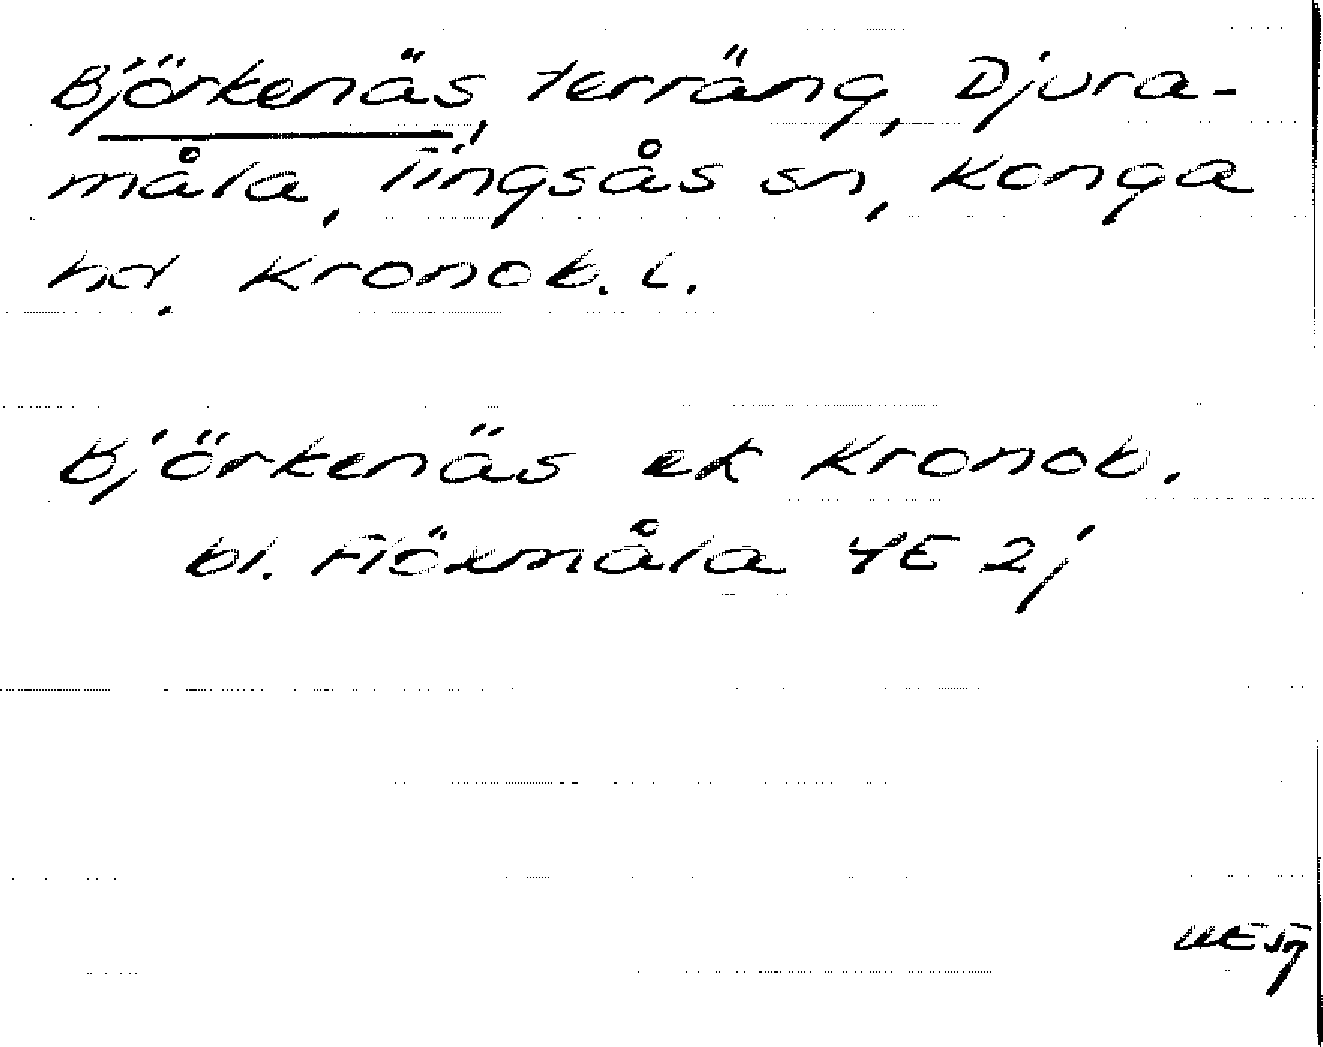 Björkenäs, terräng, Djura-
måla, Tingsås sn, Konga
hd. Kronob. l.
Björkenäs ek Kronob.
bl. Flöxmåla 4E 2j